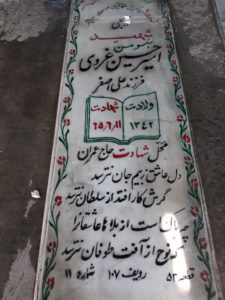 شهید
امیر حسین غروی
فرزند علی اصغر
ولادت شهادت
۱۳۴۲ ۶۵,۶,۱۱
محل شهادت حاج عمران
دل عاشق ز بیم جان نترسد
گرش کار افتد از سلطان نترسد
چه باک است از بلاها عاشقانرا
که نوح از آفت طوفان نترسد
قطعه ۵۳ ردیف ۱۰۷ شماره ۱۱